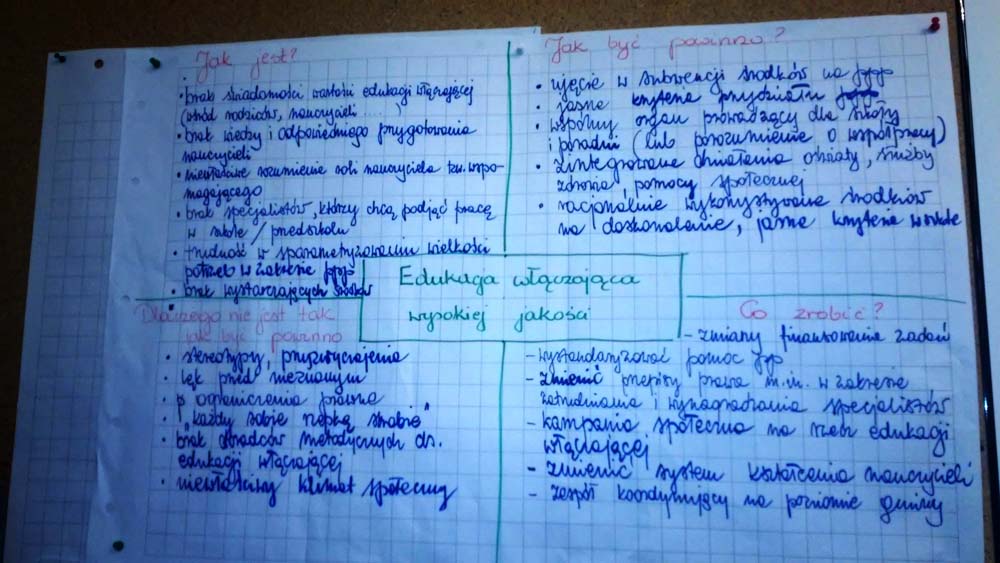 Jak jest?
• brak świadomości wartości edukacji włączającej
(wśród rodziców, nauczycieli ....)
• brak wiedzy i odpowiedniego przygotowania
nauczycieli
• niewłaściwe rozumienie roli nauczyciela tzw. wspo-
magającego
• brak specjalistów, którzy chcą podjąć pracę
w szkole / przedszkolu
• trudność w sparametryzowaniu wielkości
potrzeb w zakresie ppp
• brak wystarczających środków
Jak być powinno?
• ujęcie w subwencji środków na ppp
• jasne kryteria przydziału
• wspólny organ prowadzący dla szkoły
i poradni (lub porozumienie o współpracy)
• zintegrowane działania oświaty, służby
zdrowia, pomocy społecznej
• racjonalnie wykorzystywanie środków
na doskonalenie, jasne kryteria
Edukacja włączająca
wysokiej jakości
Dlaczego nie jest tak
jak być powinno
• stereotypy, przyzwyczajenia
• lęk przed nieznanym
• ograniczenia prawne
• "każdy sobie rzepkę skrobie"
• brak doradców metodycznych ds.
edukacji włączającej
• niewłaściwy klimat społeczny
Co zrobić?
- zmiany finansowania zadań
- wystandaryzować pomoc pp
- zmienić przepisy prawa m.in. w zakresie
zatrudniania i wynagradzania specjalistów
- kampania społeczna na rzecz edukacji
włączającej
- zmienić system kształcenia nauczycieli
- zespół koordynujący na poziomie gminy